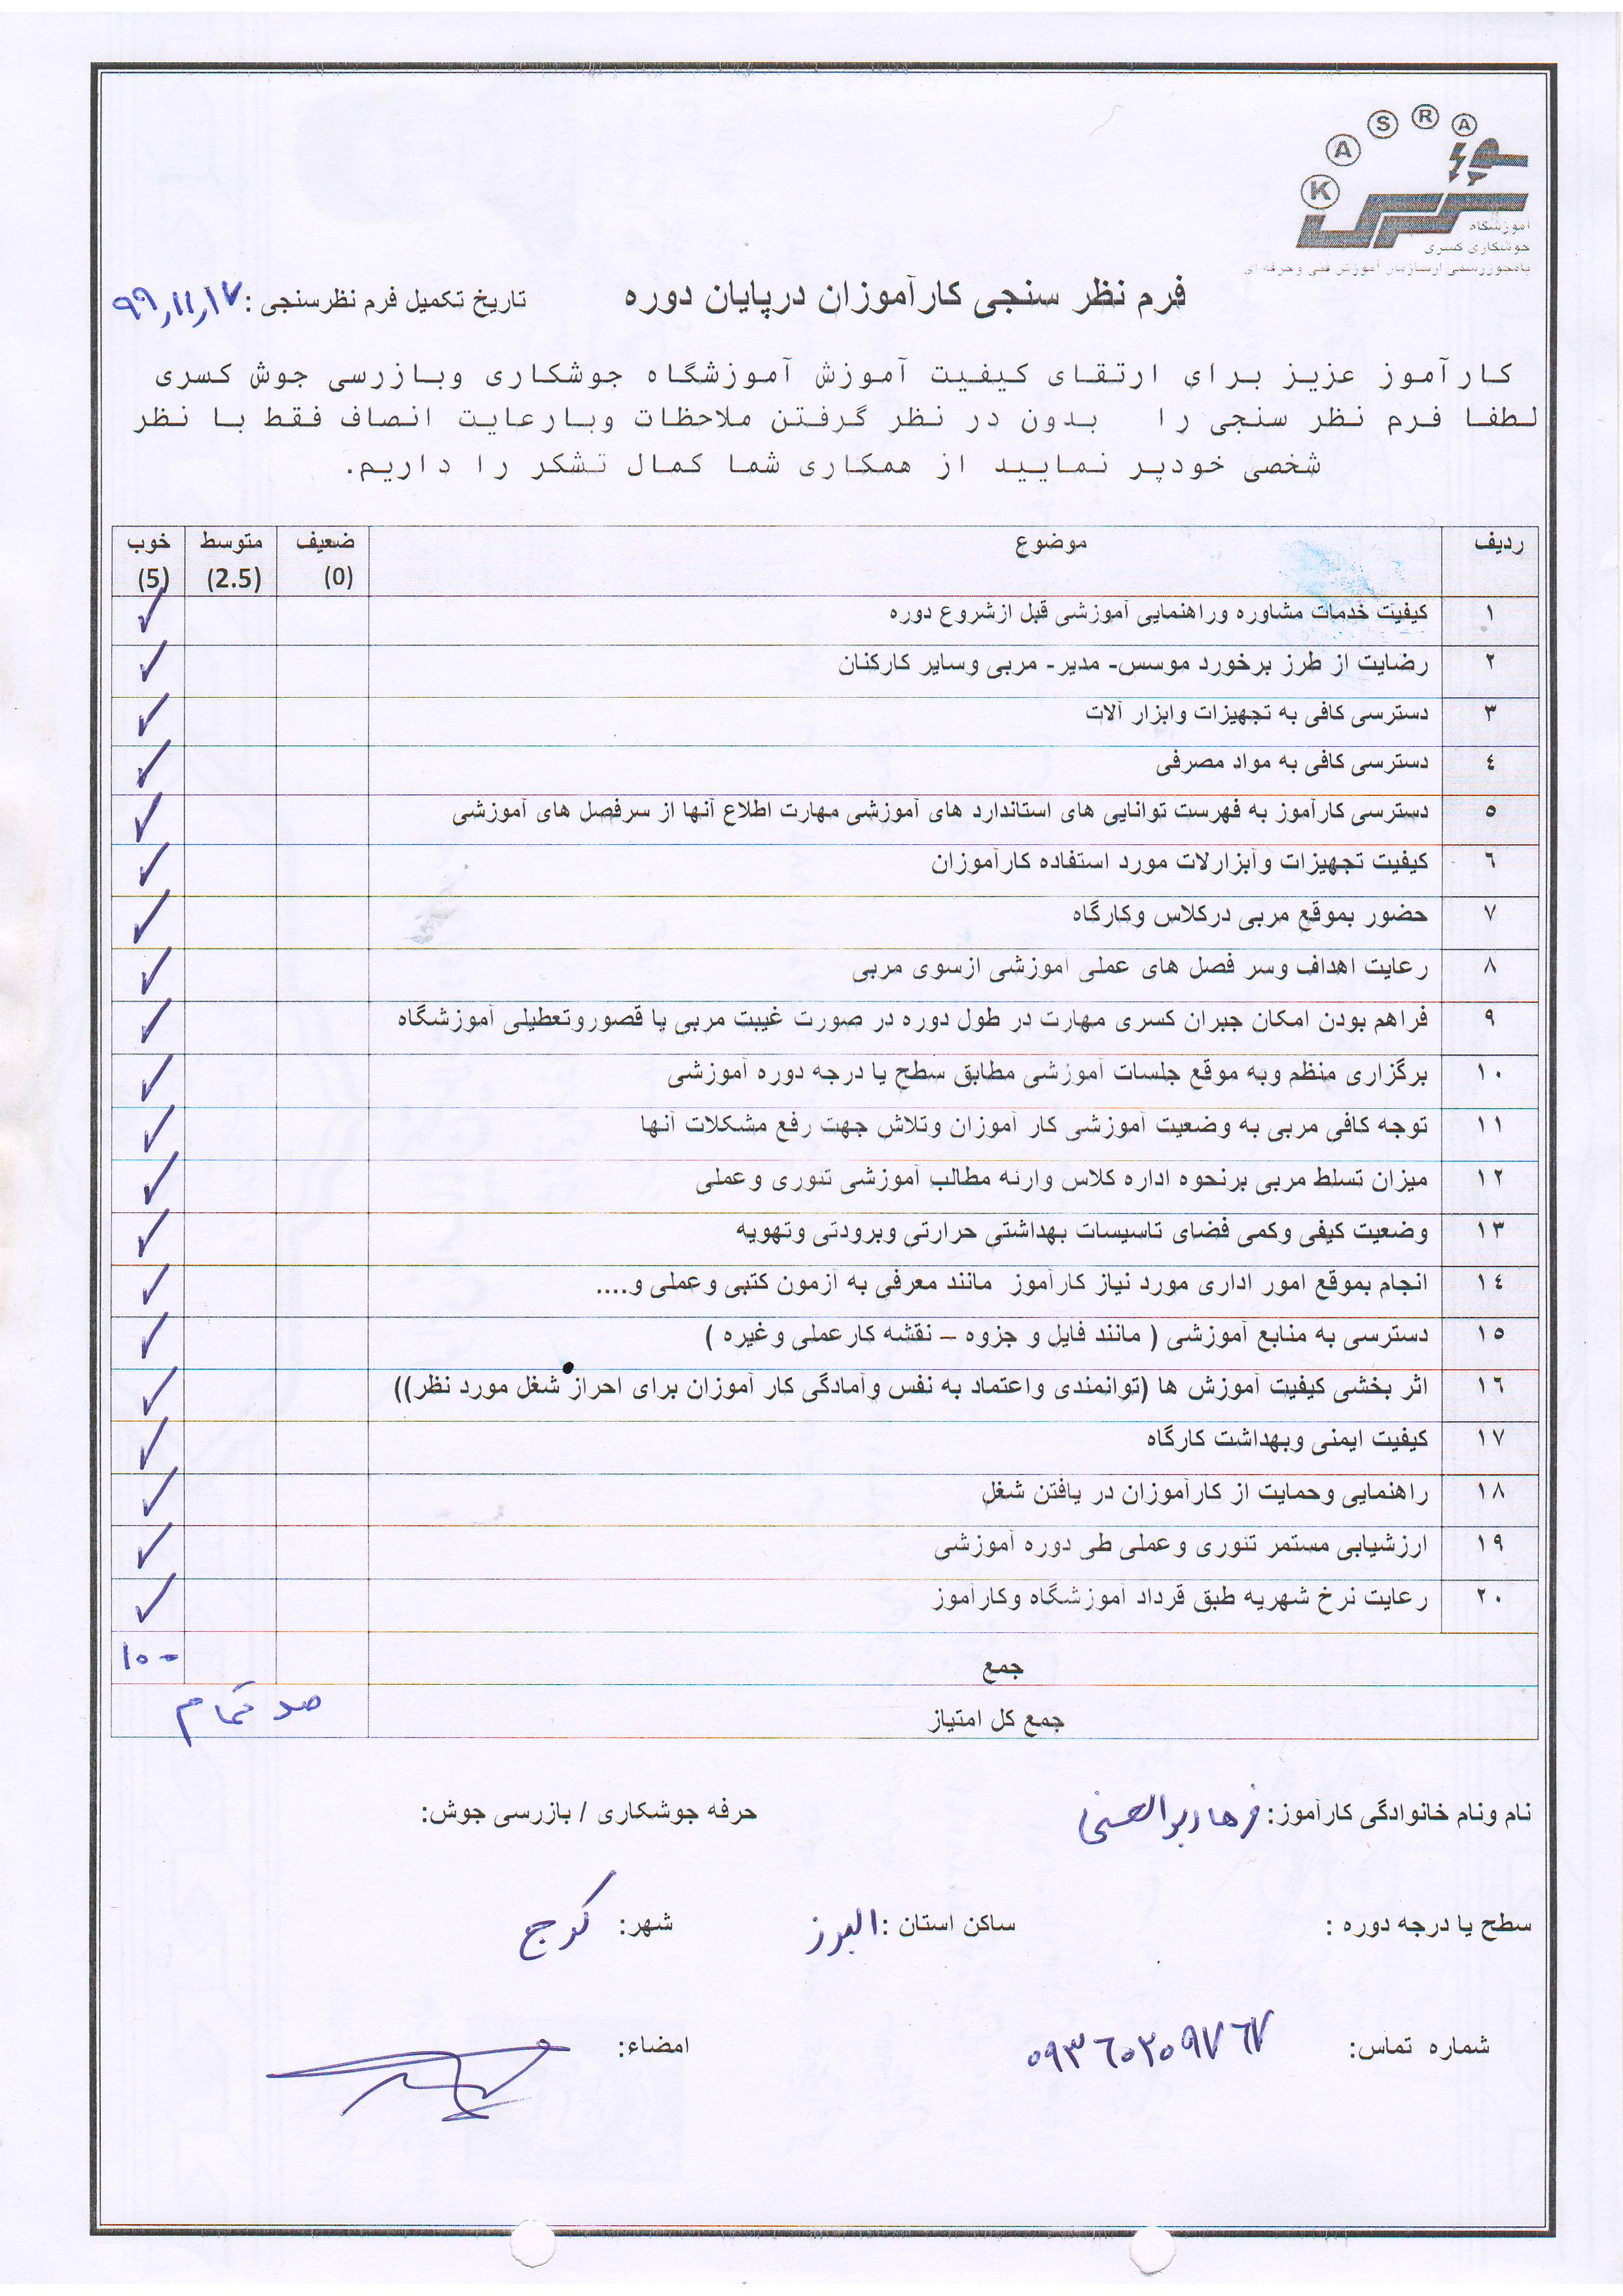 K A S R A
آموزشگاه
جوشکاری کسری
بامجوزرسمی ازسازمان آموزش فنی وحرفه ای
فرم نظر سنجی کارآموزان درپایان دوره
تاریخ تکمیل فرم نظرسنجی : ۹۹,۱۱,۱۷
کارآموز عزیز برای ارتقای کیفیت آموزش آموزشگاه جوشکاری وبازرسی جوش کسری
لطفا فرم نظر سنجی را بدون در نظر گرفتن ملاحظات وبارعایت انصاف فقط با نظر
شخصی خودپر نمایید از همکاری شما کمال تشکر را داریم.
ردیف موضوع ضعیف (0) متوسط (2.5) خوب (5)
۱ کیفیت خدمات مشاوره وراهنمایی آموزشی قبل ازشروع دوره ✓
۲ رضایت از طرز برخورد موسس- مدیر- مربی وسایر کارکنان ✓
۳ دسترسی کافی به تجهیزات وابزار آلات ✓
٤ دسترسی کافی به مواد مصرفی ✓
٥ دسترسی کارآموز به فهرست توانایی های استاندارد های آموزشی مهارت اطلاع آنها از سرفصل های آموزشی ✓
٦ کیفیت تجهیزات وآبزارلات مورد استفاده کارآموزان ✓
۷ حضور بموقع مربی درکلاس وکارگاه ✓
۸ رعایت اهداف وسر فصل های عملی آموزشی ازسوی مربی ✓
۹ فراهم بودن امکان جبران کسری مهارت در طول دوره در صورت غیبت مربی یا قصوروتعطیلی آموزشگاه ✓
۱۰ برگزاری منظم وبه موقع جلسات آموزشی مطابق سطح یا درجه دوره آموزشی ✓
۱۱ توجه کافی مربی به وضعیت آموزشی کار آموزان وتلاش جهت رفع مشکلات آنها ✓
۱۲ میزان تسلط مربی برنحوه اداره کلاس وارئه مطالب آموزشی تئوری وعملی ✓
۱۳ وضعیت کیفی وکمی فضای تاسیسات بهداشتی حرارتی وبرودتی وتهویه ✓
۱٤ انجام بموقع امور اداری مورد نیاز کارآموز مانند معرفی به آزمون کتبی وعملی و.... ✓
۱٥ دسترسی به منابع آموزشی ( مانند فایل و جزوه – نقشه کارعملی وغیره ) ✓
۱٦ اثر بخشی کیفیت آموزش ها (توانمندی واعتماد به نفس وآمادگی کار آموزان برای احراز شغل مورد نظر)) ✓
۱۷ کیفیت ایمنی وبهداشت کارگاه ✓
۱۸ راهنمایی وحمایت از کارآموزان در یافتن شغل ✓
۱۹ ارزشیابی مستمر تئوری وعملی طی دوره آموزشی ✓
۲۰ رعایت نرخ شهریه طبق قرداد آموزشگاه وکارآموز ✓
جمع ۱۰۰
جمع کل امتیاز صد تمام
نام ونام خانوادگی کارآموز: فرهاد ابوالحسنی حرفه جوشکاری / بازرسی جوش:
سطح یا درجه دوره : ساکن استان : البرز شهر: کرج
شماره تماس: ۰۹۳٦۰۲۰۹۷٦۷ امضاء: